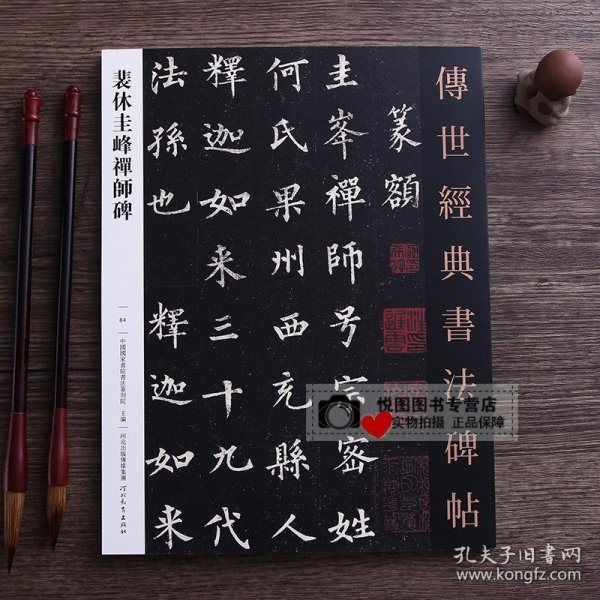 傳世經典書法碑帖
篆額
圭峯禪師号宗密姓
何氏果州西充縣人
釋迦如来三十九代
法孫也 釋迦如来
裴休圭峰禪師碑
64
中國國家畫院書法篆刻院 主編
河北出版傳媒集團
河北教育出版社
悦图图书专营店
实物拍摄 正品保障
孔夫子旧书网
www.kongfz.com